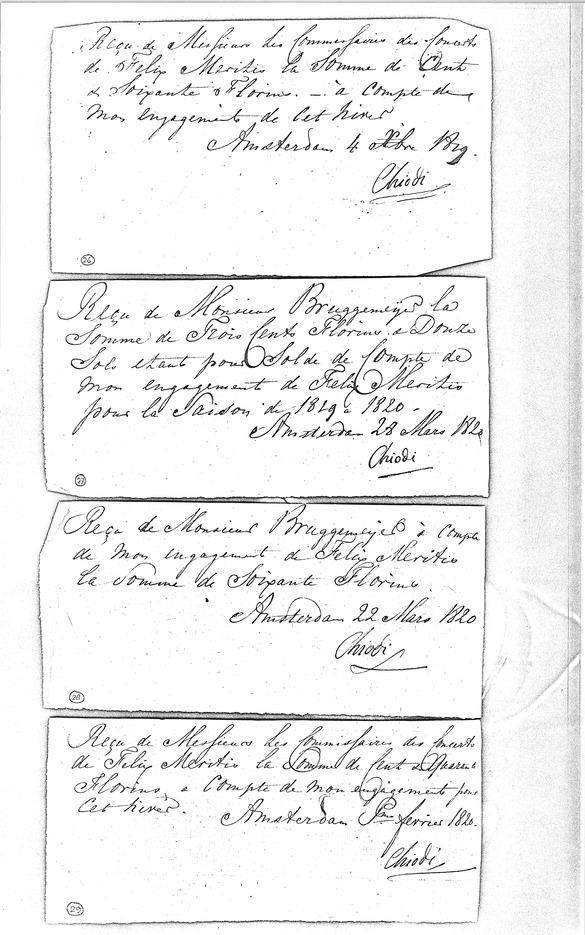 Reçu de Messieurs Les Commessaires des Concerts
de Felix Meritis la Somme de Cent
& Soixante Florins. — à compte de
mon engagement de Cet hiver
Amsterdam 4 Xbre 1819.
Chiodi
26
Reçu de Monsieur Bruggemeijer la
Somme de Trois Cents Florins & Douze
Sols etant pour Solde de Compte de
mon engagement de Felix Meritis
pour la Saison de 1819 à 1820.
Amsterdam 28 Mars 1820
Chiodi
27
Reçu de Monsieur Bruggemeijer à Compte
de mon engagement de Felix Meritis
la Somme de Soixante Florins
Amsterdam 22 Mars 1820
Chiodi
28
Reçu de Messieurs Les Commissaires des Concerts
de Felix Meritis la Somme de Cent & Quarente
Florins, a Compte de mon engagement pour
Cet hiver.
Amsterdam fevrier 1820.
Chiodi
29